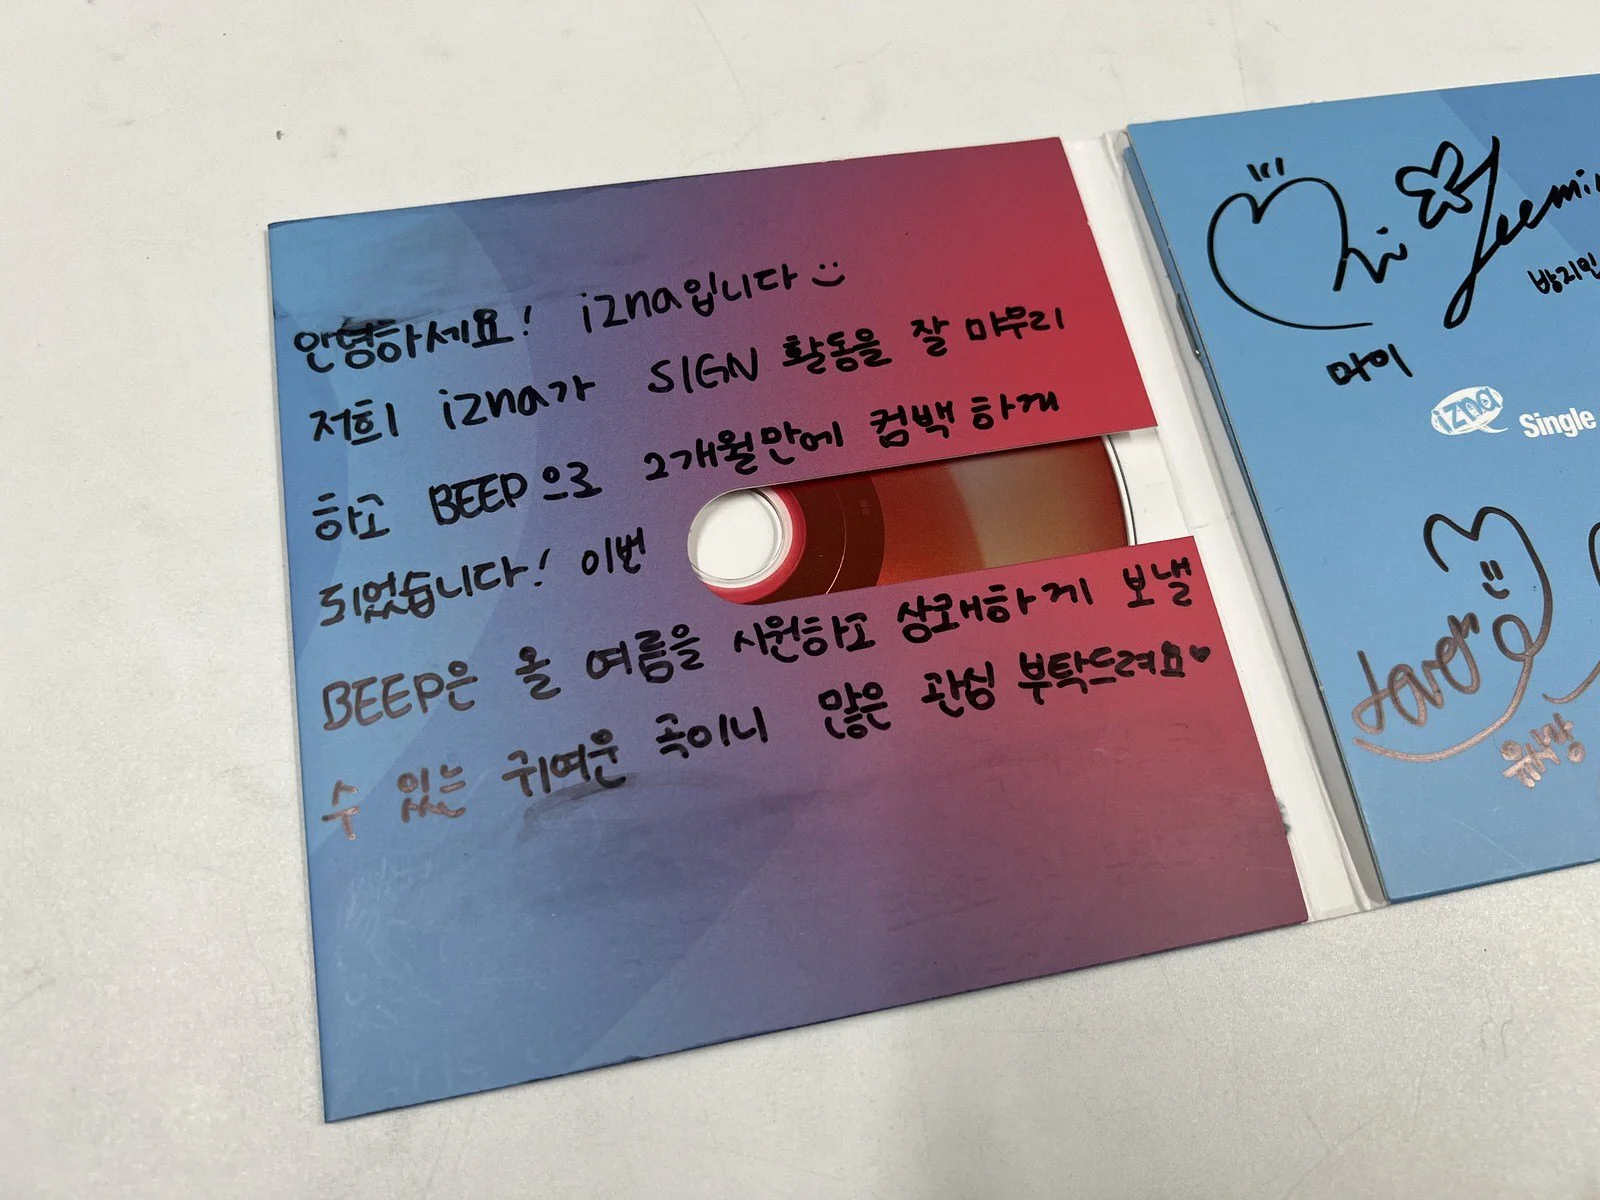 안녕하세요! izna입니다
저희 izna가 SIGN 활동을 잘 마무리
하고 BEEP으로 2개월만에 컴백하게
되었습니다! 이번
BEEP은 올 여름을 시원하고 상쾌하게 보낼
수 있는 귀여운 곡이니 많은 관심 부탁드려요♥
Mai
Jeemi
마이
방지민
izna Single
유사랑